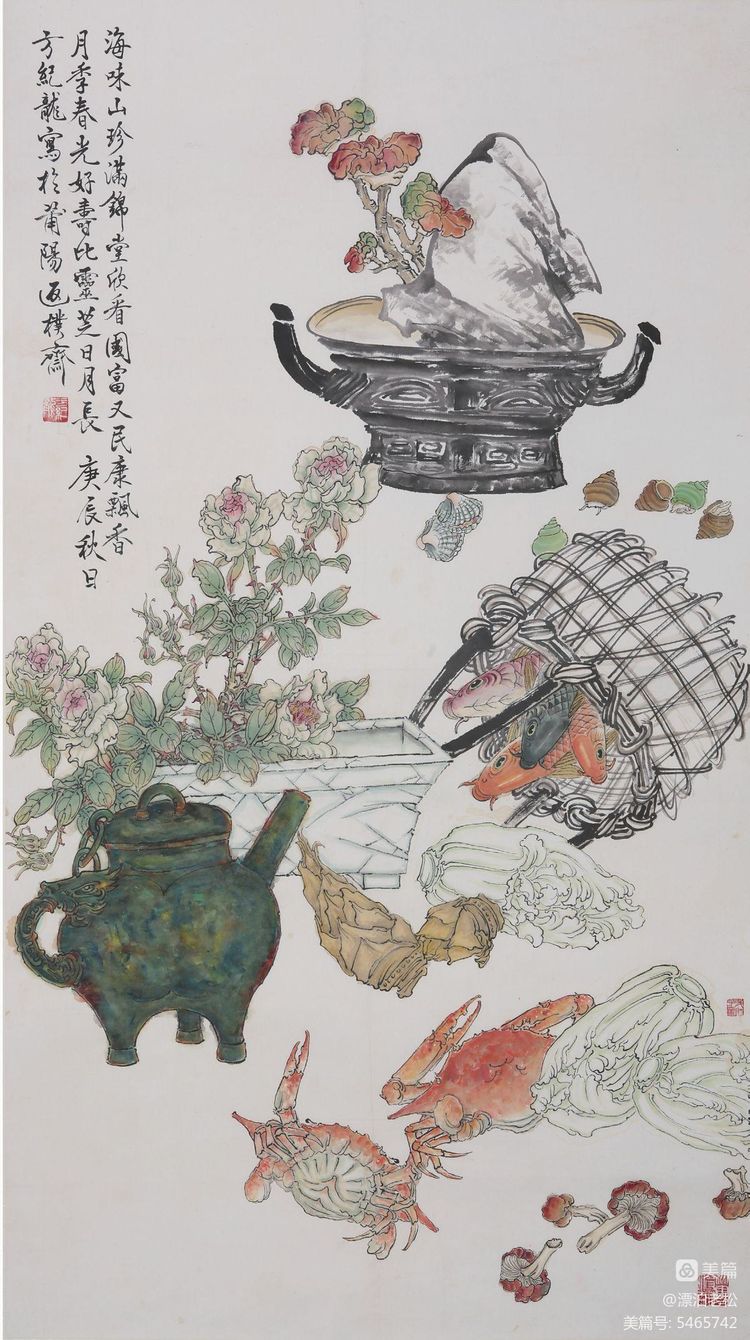 海味山珍滿錦堂欣看國富又民康飄香
月季春光好壽比靈芝日月長 庚辰秋日
方紀龍寫於莆陽返樸齋
美篇
@漂泊老松
美篇号: 5465742